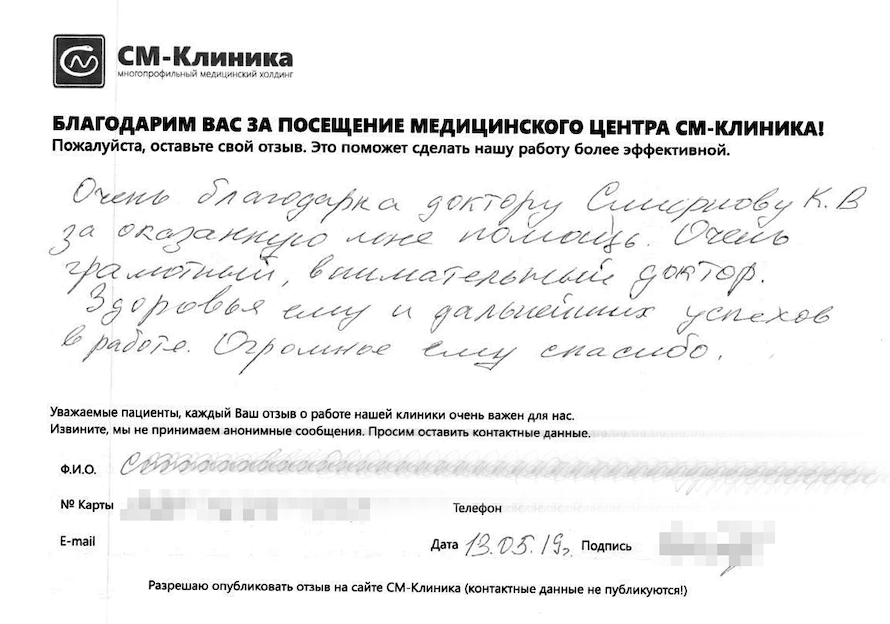 СМ-Клиника
многопрофильный медицинский холдинг
БЛАГОДАРИМ ВАС ЗА ПОСЕЩЕНИЕ МЕДИЦИНСКОГО ЦЕНТРА СМ-КЛИНИКА!
Пожалуйста, оставьте свой отзыв. Это поможет сделать нашу работу более эффективной.
Очень благодарна доктору Смирнову К.В
за оказанную мне помощь. Очень
грамотный, внимательный доктор.
Здоровья ему и дальнейших успехов
в работе. Огромное ему спасибо.
Уважаемые пациенты, каждый Ваш отзыв о работе нашей клиники очень важен для нас.
Извините, мы не принимаем анонимные сообщения. Просим оставить контактные данные.
Ф.И.О.
№ Карты Телефон
E-mail Дата 13.05.19г. Подпись
Разрешаю опубликовать отзыв на сайте СМ-Клиника (контактные данные не публикуются!)